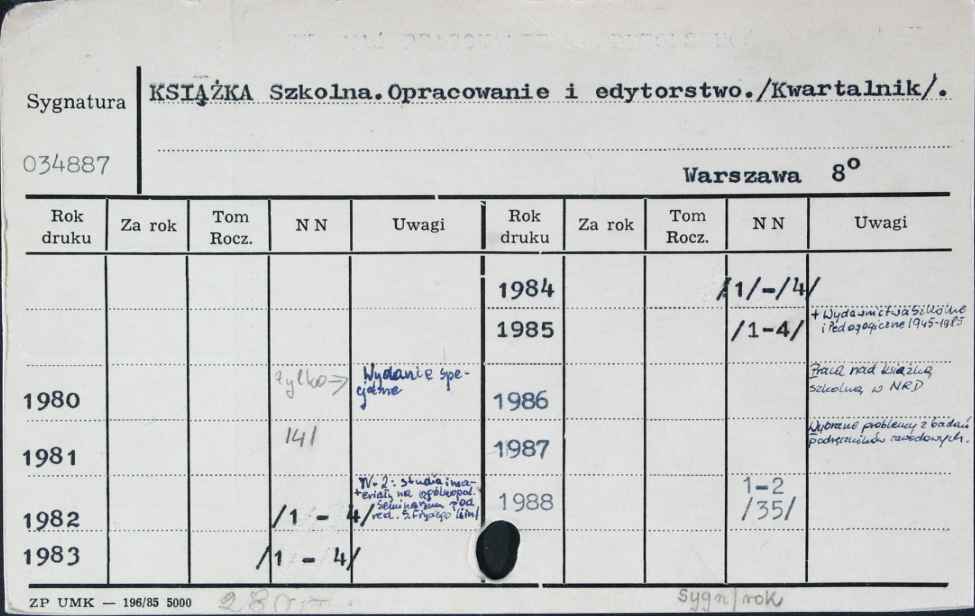 Sygnatura
KSIĄŻKA Szkolna.Opracowanie i edytorstwo./Kwartalnik/.
034887
Warszawa 8º
Rok druku Za rok Tom Rocz. N N Uwagi Rok druku Za rok Tom Rocz. N N Uwagi
1984 /1/-/4/
1985 /1-4/ + Wydawnictwa Szkolne
i Pedagogiczne 1945-1985
1980 tylko → Wydanie spe-
cjalne
1986 Praca nad książką
szkolną w NRD
1981 /4/
1987 Wybrane problemy z badań
podręczników zawodowych.
1982 /1 - 4/ N-2: studia i ma-
teriały na ogólnopol.
seminarium pod
red.
1988 1-2
/35/
1983 /1 - 4/
ZP UMK — 196/85 5000
Sygn/rok